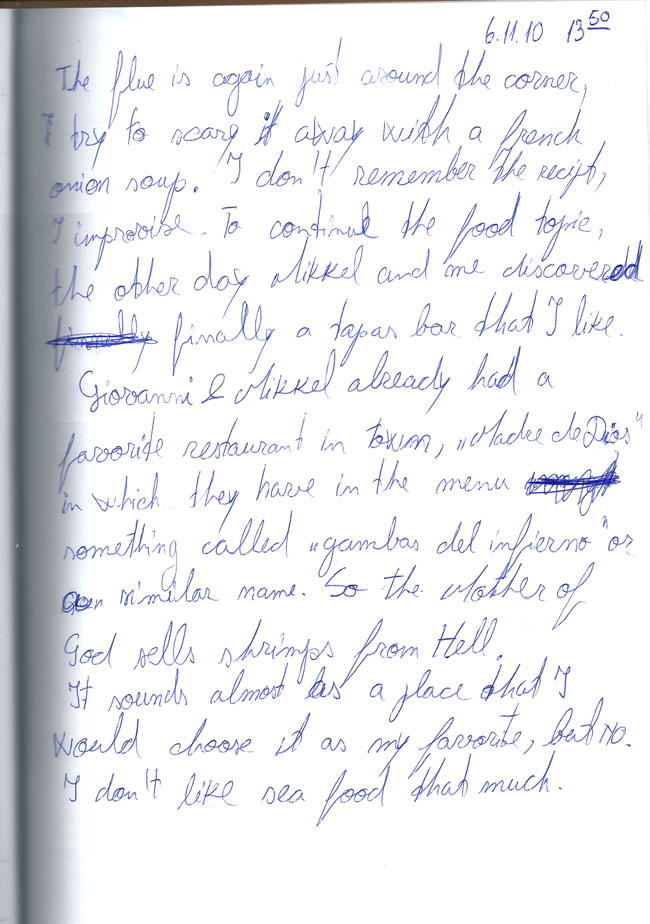 6.11.10 13 50
The flue is again just around the corner,
I try to scary it away with a french
onion soup. I don't remember the recipt,
I improvise. To continue the food topic,
the other day Mikkel and me discovered
finally a tapas bar that I like.
Giovanni & Mikkel already had a
favorite restaurant in town, „Madre de Dios"
in which they have in the menu
something called „gambas del infierno" or
similar name. So the Mother of
God sells shrimps from Hell.
It sounds almost as a place that I
would choose it as my favorite, but no.
I don't like sea food that much.